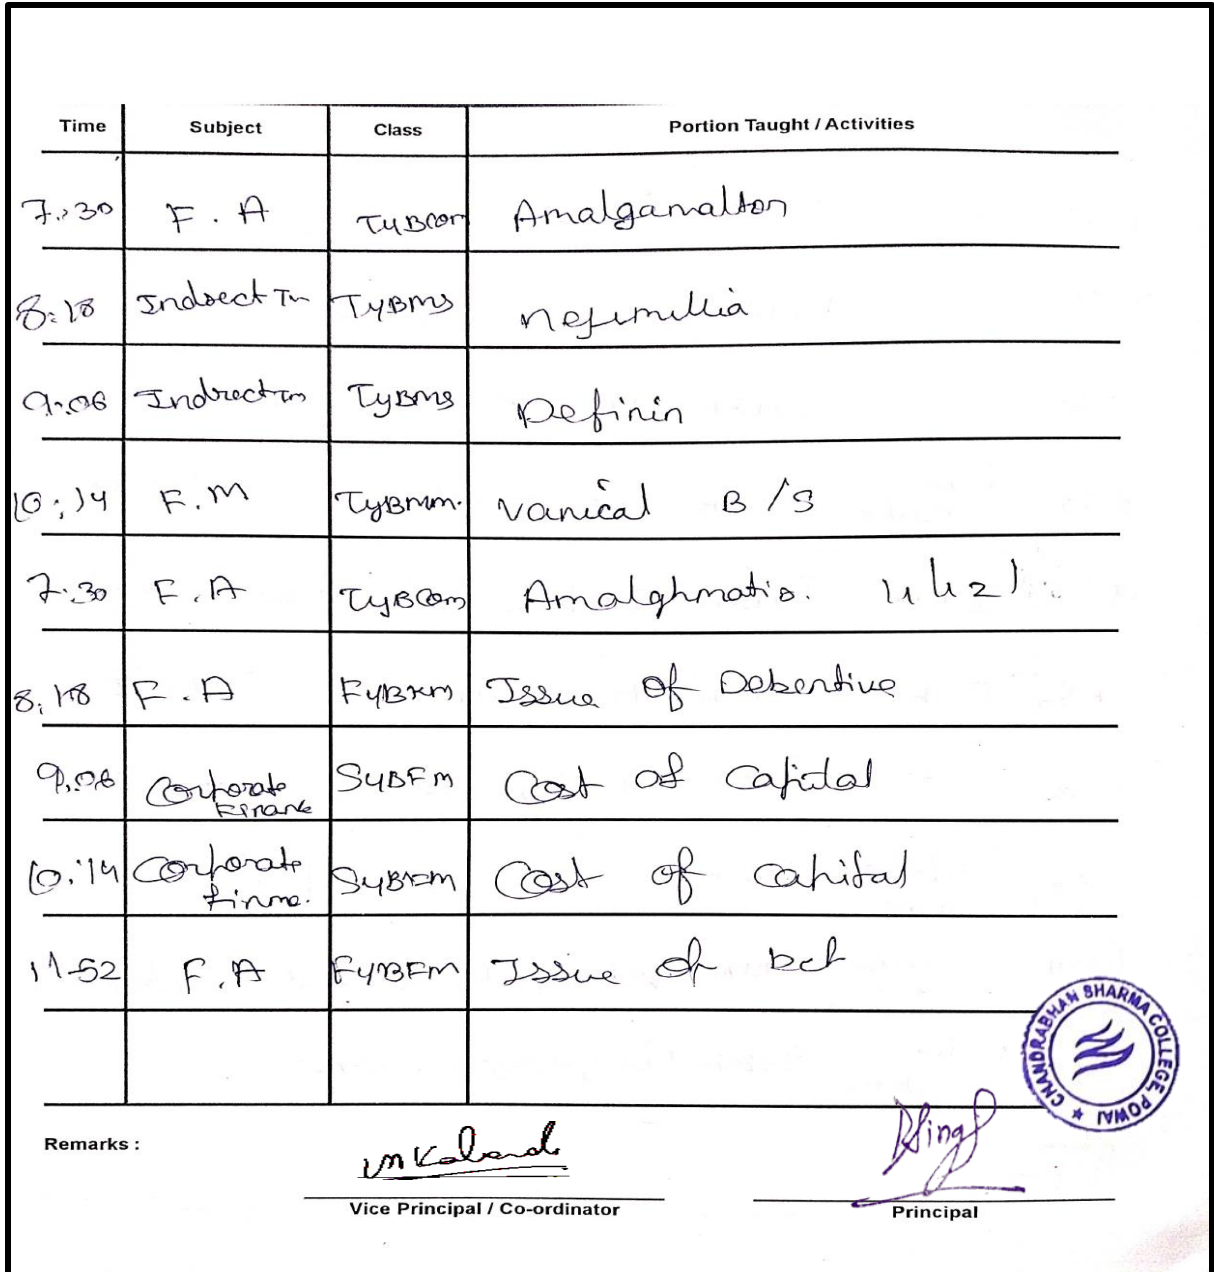 Time Subject Class Portion Taught / Activities
7:30 F.A TyBcom Amalgamation
8:18 Indirect TyBMS
9:06 Indirect TyBMS Definin
10:14 F.M TyBMM. B/S
7:30 F.A TyBCom Amalghmatio.
8:18 F.A Issue of Debentive
9.06 Corporate Finance SyBFM Cost of Capital
10:14 Corporate SyBFM Cost of Capital
11-52 F.A FyBFM Issue of
CHANDRABHAN SHARMA COLLEGE, POWAI
Remarks :
Vice Principal / Co-ordinator
Principal